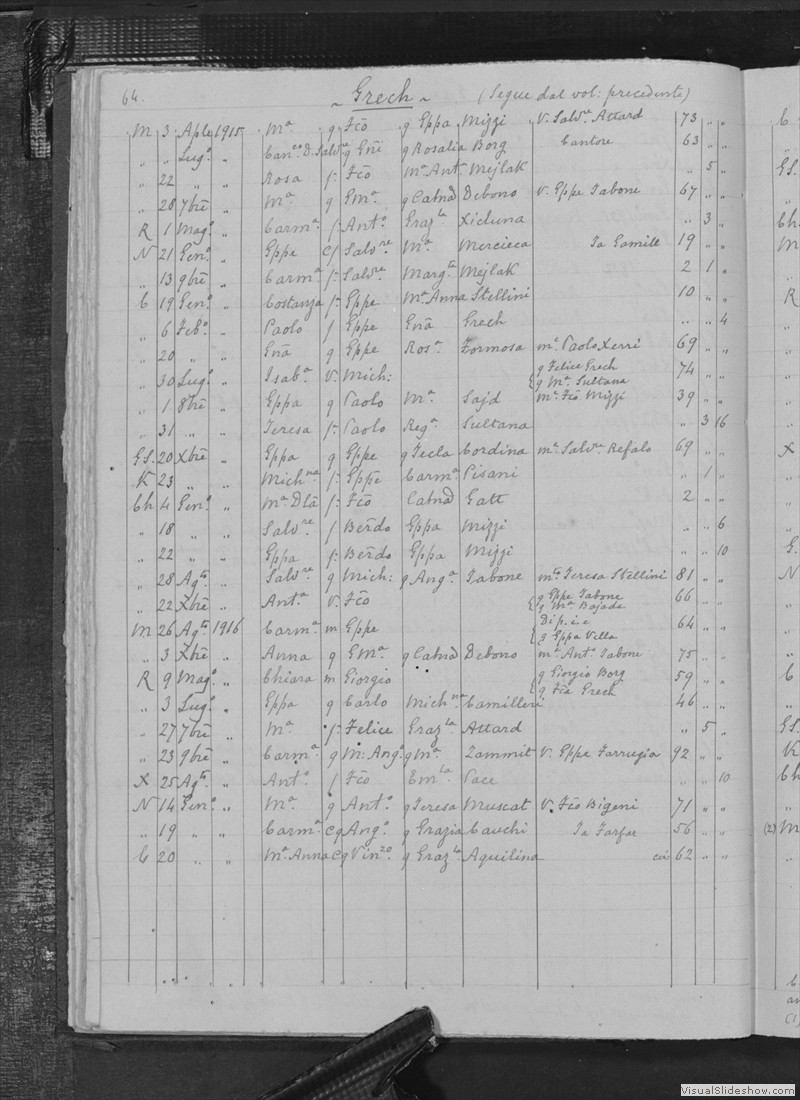 64. ~ Grech ~ (Segue dal vol: precedente)
M 3 Aple 1915 Ma g Fco g Eppa Mizzi V. Salvre Attard 73 " "
" " Lugo " Canco D. Salvre g Gni g Rosalia Borg Cantore 63 " "
" 22 " " Rosa f: Fco Ma Ant. Mejlak " 5 "
" 28 7bre " Ma g Ema g Catna Debono V. Eppe Tabone 67 " "
R 1 Mago " Carma f: Anto Grazla Xicluna " 3 "
N 21 Geno " Eppe Cf Salvre Ma Mercieca Ta Gamill 19 " "
" 13 9bre " Carma f: Salvre Margta Mejlak 2 1 "
C 19 Geno " Costanza f: Eppe Ma Anna Stellini 10 " "
" 6 Febo " Paolo f Eppe Gna Grech " " 4
" 20 " " Gna g Eppe Rosa Formosa me Paolo Xerri 69 " "
" 30 Lugo " Isaba v. Mich: { g Felice Grech 74 " "
{ g Ma Sultana
" 1 8bre " Eppa g Paolo Ma Sajd me Fco Mizzi 39 " "
" 31 " " Teresa f: Paolo Rega Sultana " 3 16
GS. 20 Xbre " Eppa g Eppe g Tecla Cordina me Salvre Refalo 69 " "
K 23 " " Michna f: Eppe Carma Pisani " 1 "
Ch 4 Geno " Ma Dta f: Fco Catna Gatt 2 " "
" 18 " " Salvre f Berdo Eppa Mizzi " " 6
" 22 " " Eppa f: Berdo Eppa Mizzi " " 10
" 28 Agto " Salvre g Mich: g Anga Tabone mto Teresa Stellini 81 " "
" 22 Xbre " Anta v. Fco { g Eppe Tabone 66 " "
{ g Ma Bajada
M 26 Agto 1916 Carma m Eppe { Di p.i.e 64 " "
{ g Eppa Villa
" 3 Xbre " Anna g Ema g Catna Debono me Anto Tabone 75 " "
R 9 Mago " Chiara m Giorgio { g Giorgio Borg 59 " "
{ g Fca Grech
" 3 Lugo " Eppa g Carlo Michna Camilleri 46 " "
" 27 7bre " Ma f: Felice Grazla Attard " 5 "
" 23 9bre " Carma g M: Ango g Ma Zammit V. Eppe Farrugia 92 " "
X 25 Agto " Anto f Fco Emla Pace " " 10
N 14 Geno " Ma g Anto g Teresa Muscat V. Fco Bigeni 71 " "
" 19 " " Carma Cg Ango g Grazia Cauchi Ta Farfar 56 " "
C 20 " " Ma Anna Cg Vinzo g Grazla Aquilina 62 " "
VisualSlideshow.com